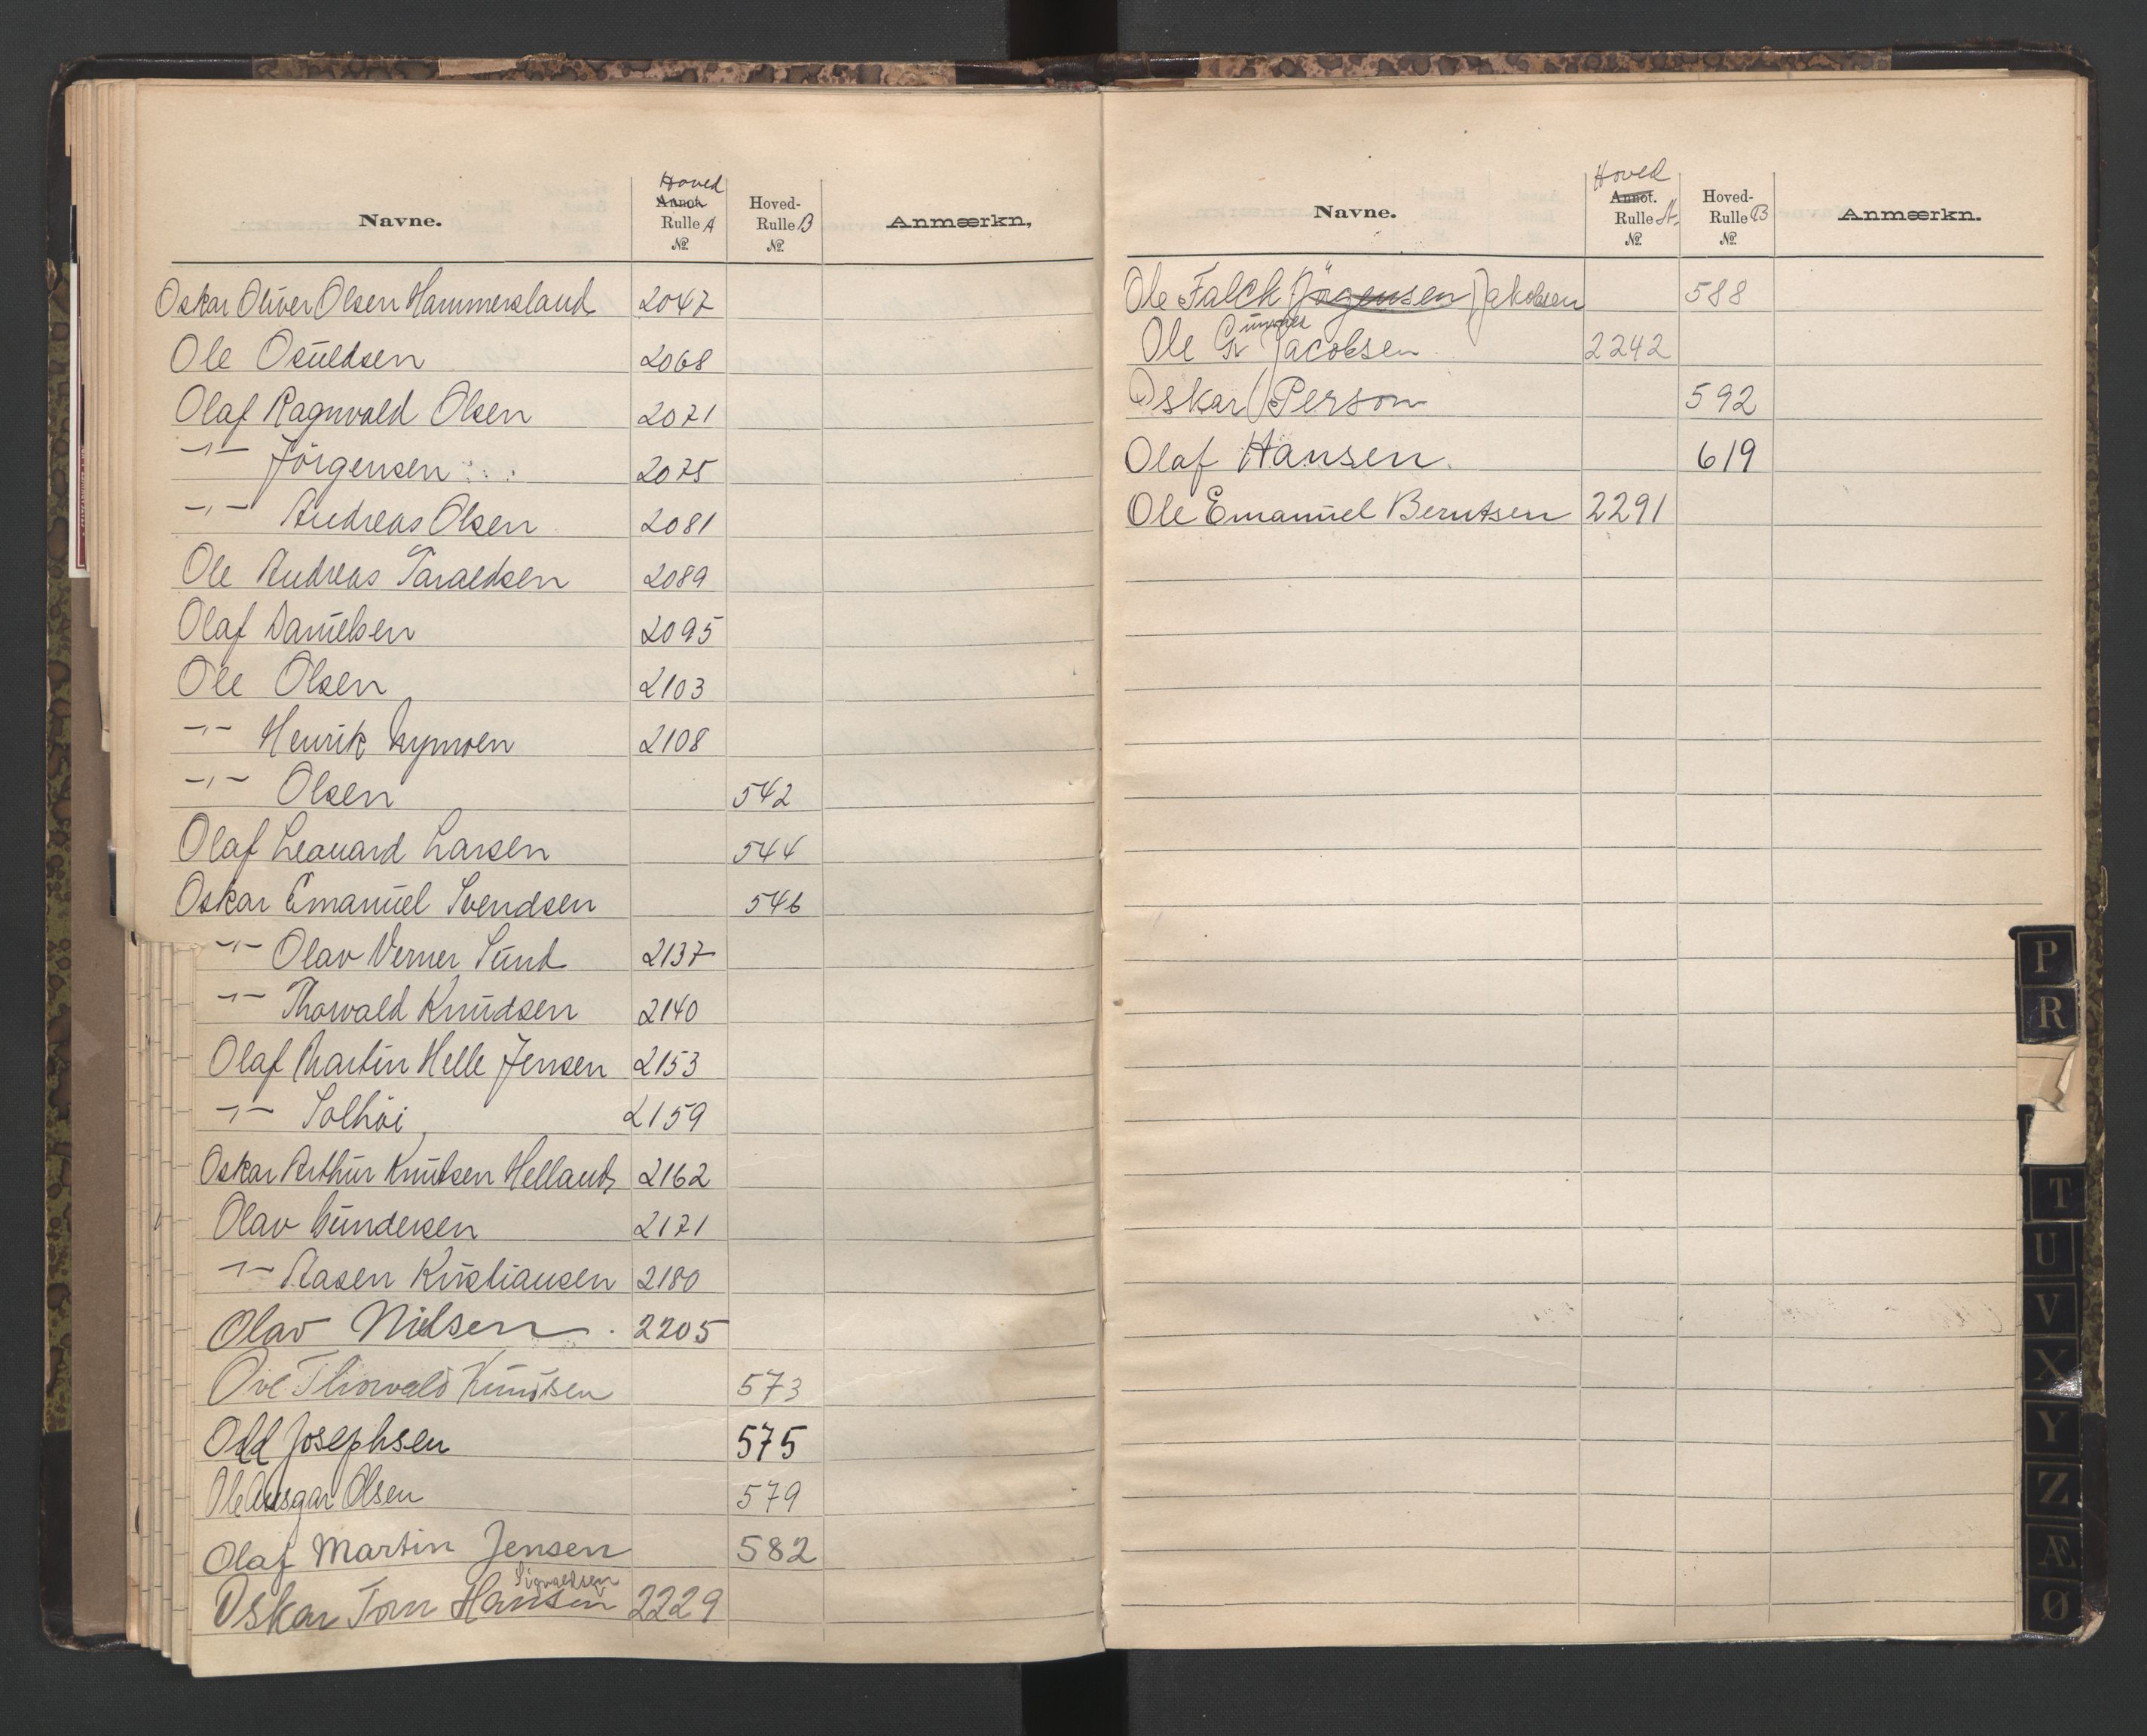 Navne. Hoved Annot. Rulle A № Hoved-Rulle B № Anmærkn.
Oskar Oliver Olsen Hammersland 2047
Ole Osuldsen 2068
Olaf Ragnvald Olsen 2071
-"- Jörgensen 2075
-"- Andreas Olsen 2081
Ole Andreas Taraldsen 2089
Olaf Danielsen 2095
Ole Olsen 2103
-"- Henrik Nymoen 2108
-"- Olsen 542
Olaf Leonard Larsen 544
Oskar Emanuel Svendsen 546
-"- Olav Verner Sund 2137
-"- Thorvald Knudsen 2140
Olaf Martin Helle Jensen 2153
-"- Solhöi 2159
Oskar Arthur Knutsen Helland 2162
Olav Gundersen 2171
-"- Aasen Kristiansen 2180
Olav Nielsen 2205
Ove Thorvald Knudsen 573
Odd Josephsen 575
Ole Ansgar Olsen 579
Olaf Martin Jensen 582
Sigvaldsen
Oskar Tom Hansen 2229
Navne. Hoved Annot. Rulle A. № Hoved-Rulle B № Anmærkn.
Ole Falch Jörgensen Jakobsen 588
Ole Gunner Jacobsen 2242
Oskar Person 592
Olaf Hansen 619
Ole Emanuel Berntsen 2291
P
R
T
U
V
X
Y
Z
Æ
Ø